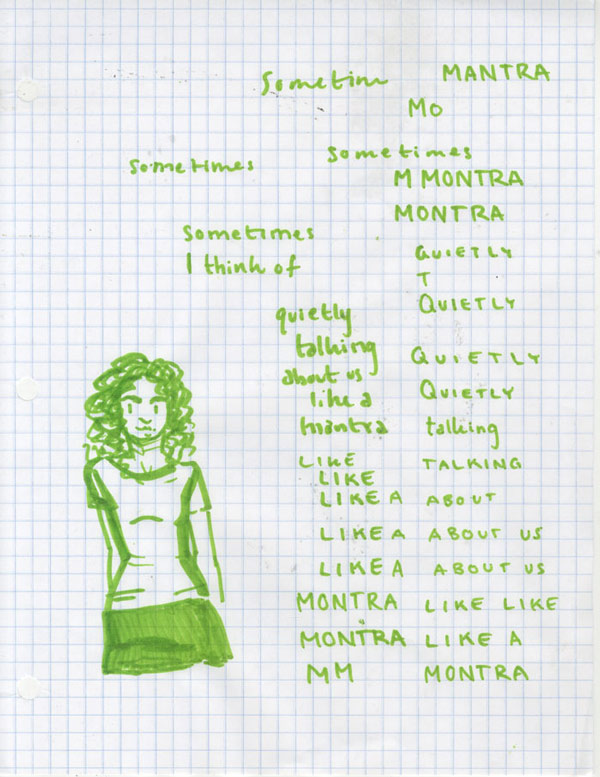 Sometim MANTRA
Mo
Sometimes Sometimes
M MONTRA
MONTRA
Sometimes
I think of QUIETLY
T
QUIETLY
quietly
talking QUIETLY
about us
like a QUIETLY
mantra talking
LIKE TALKING
LIKE
LIKE A ABOUT
LIKE A ABOUT US
LIKE A ABOUT US
MONTRA LIKE LIKE
MONTRA LIKE A
MM MONTRA